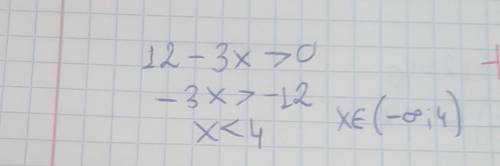 12 - 3x > 0
-3x > -12
x < 4 x∈(-∞; 4)